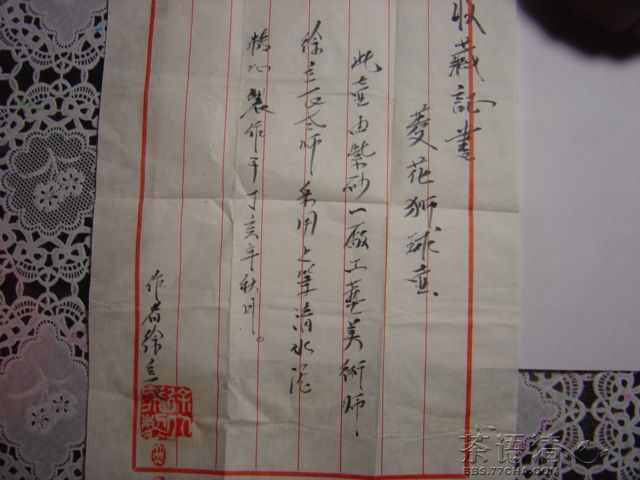 收藏記書
菱花狮球壶.
此壶由紫砂一厰工藝美術师.
徐立大师采用上等清水泥
精心製作于丁亥年秋月。
作者徐立
茶语春
BBS.77CHA.COM